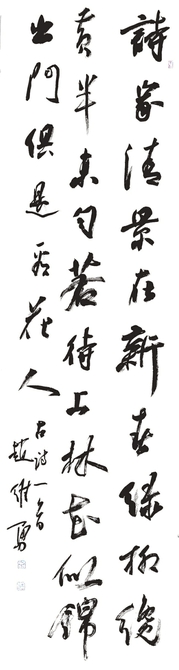 詩家清景在新春綠柳纔
黃半未勻若待上林花似錦
出門俱是看花人
古詩一首
趙維勇